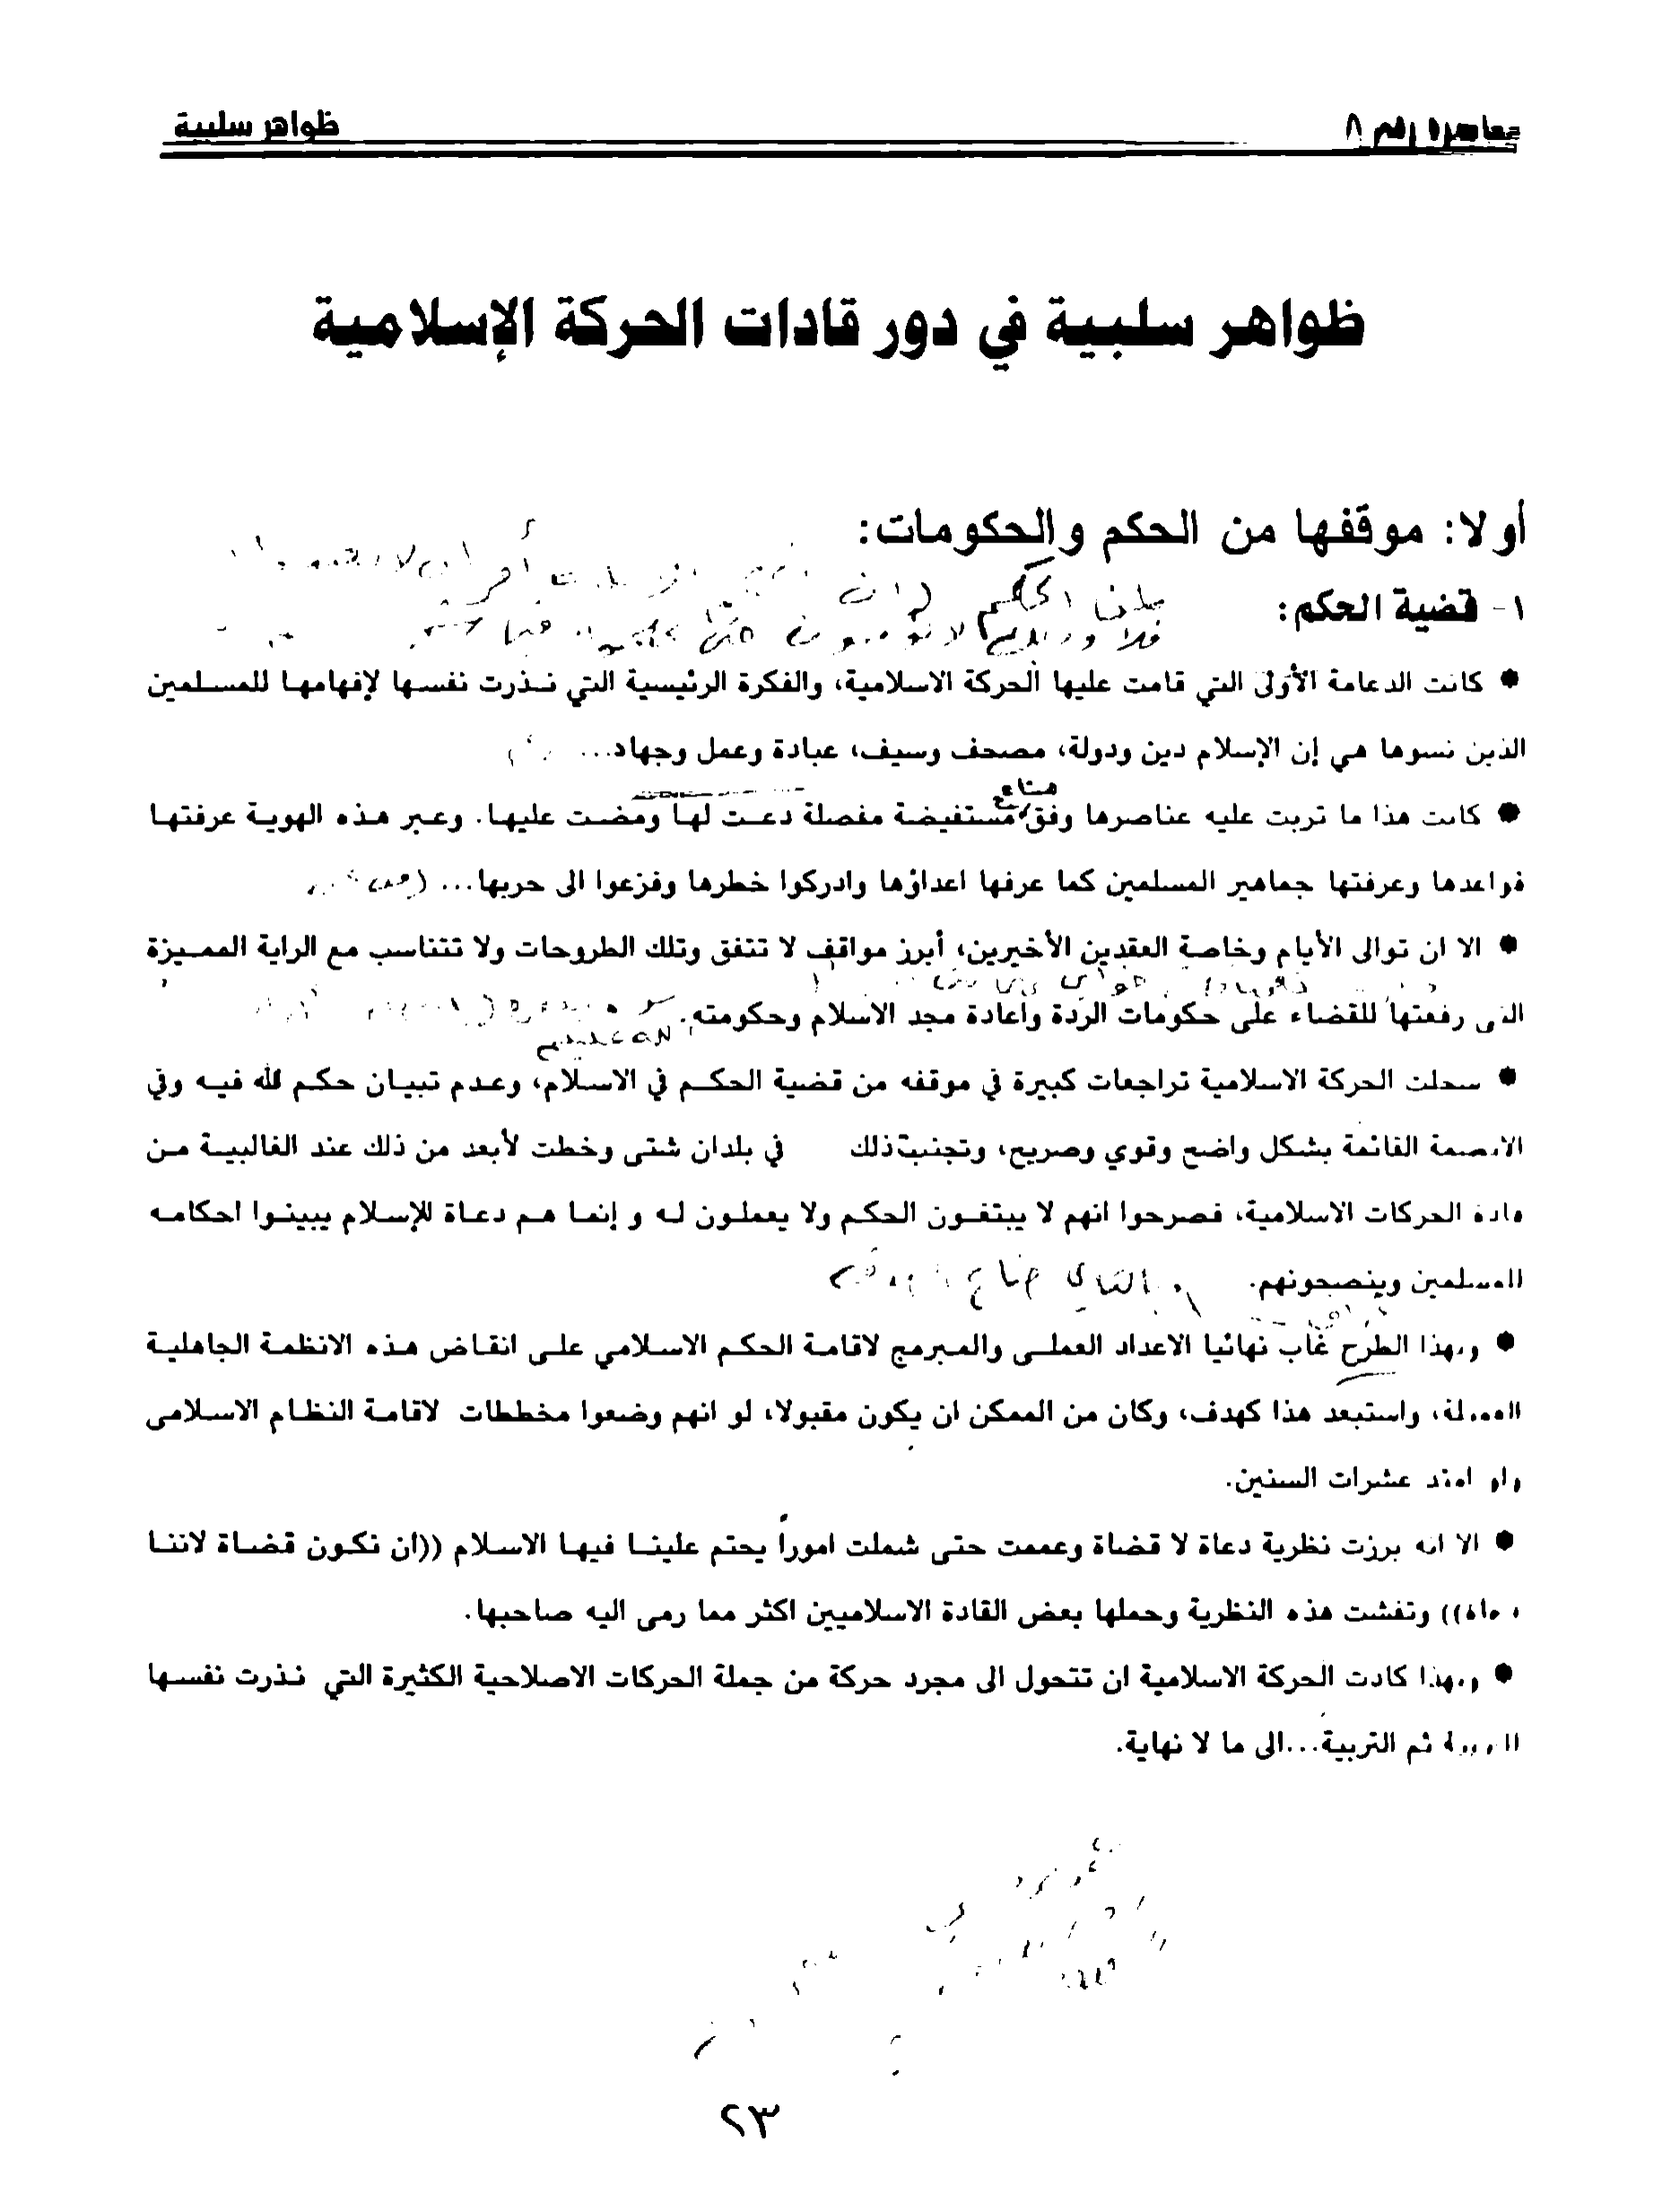 محاضرة رقم ٨
ظواهر سلبية
ظواهر سلبية في دور قادات الحركة الإسلامية
أولا: موقفها من الحكم والحكومات:
١- قضية الحكم:
● كانت الدعامة الأولى التي قامت عليها الحركة الاسلامية، والفكرة الرئيسية التي نذرت نفسها لإفهامها للمسلمين
الذين نسوها هي إن الإسلام دين ودولة، مصحف وسيف، عبادة وعمل وجهاد...
مناهج
● كانت هذا ما تربت عليه عناصرها وفق مستفيضة مفصلة دعت لها ومضت عليها. وعبر هذه الهوية عرفتها
قواعدها وعرفتها جماهير المسلمين كما عرفها اعداؤها وادركوا خطرها وفزعوا الى حربها...
● الا ان توالى الأيام وخاصة العقدين الأخيرين، أبرز مواقف لا تتفق وتلك الطروحات ولا تتناسب مع الراية المميزة
التي رفعتها للقضاء على حكومات الردة واعادة مجد الاسلام وحكومته.
● سجلت الحركة الاسلامية تراجعات كبيرة في موقفه من قضية الحكم في الاسلام، وعدم تبيان حكم لله فيه وفي
الانظمة القائمة بشكل واضح وقوي وصريح، وتجنبت ذلك في بلدان شتى وخطت لأبعد من ذلك عند الغالبية من
قادة الحركات الاسلامية، فصرحوا انهم لا يبتغون الحكم ولا يعملون له و إنما هم دعاة للإسلام يبينوا احكامه
للمسلمين وينصحونهم.
● وبهذا الطرح غاب نهائيا الاعداد العملى والمبرمج لاقامة الحكم الاسلامي على انقاض هذه الانظمة الجاهلية
العميلة، واستبعد هذا كهدف، وكان من الممكن ان يكون مقبولا، لو انهم وضعوا مخططات لاقامة النظام الاسلامى
ولو امتد عشرات السنين.
● الا انه برزت نظرية دعاة لا قضاة وعممت حتى شملت اموراً يحتم علينا فيها الاسلام ((ان نكون قضاة لاننا
دعاة)) وتفشت هذه النظرية وحملها بعض القادة الاسلاميين اكثر مما رمى اليه صاحبها.
● وبهذا كادت الحركة الاسلامية ان تتحول الى مجرد حركة من جملة الحركات الاصلاحية الكثيرة التي نذرت نفسها
ثم التربية...الى ما لا نهاية.
٢٣